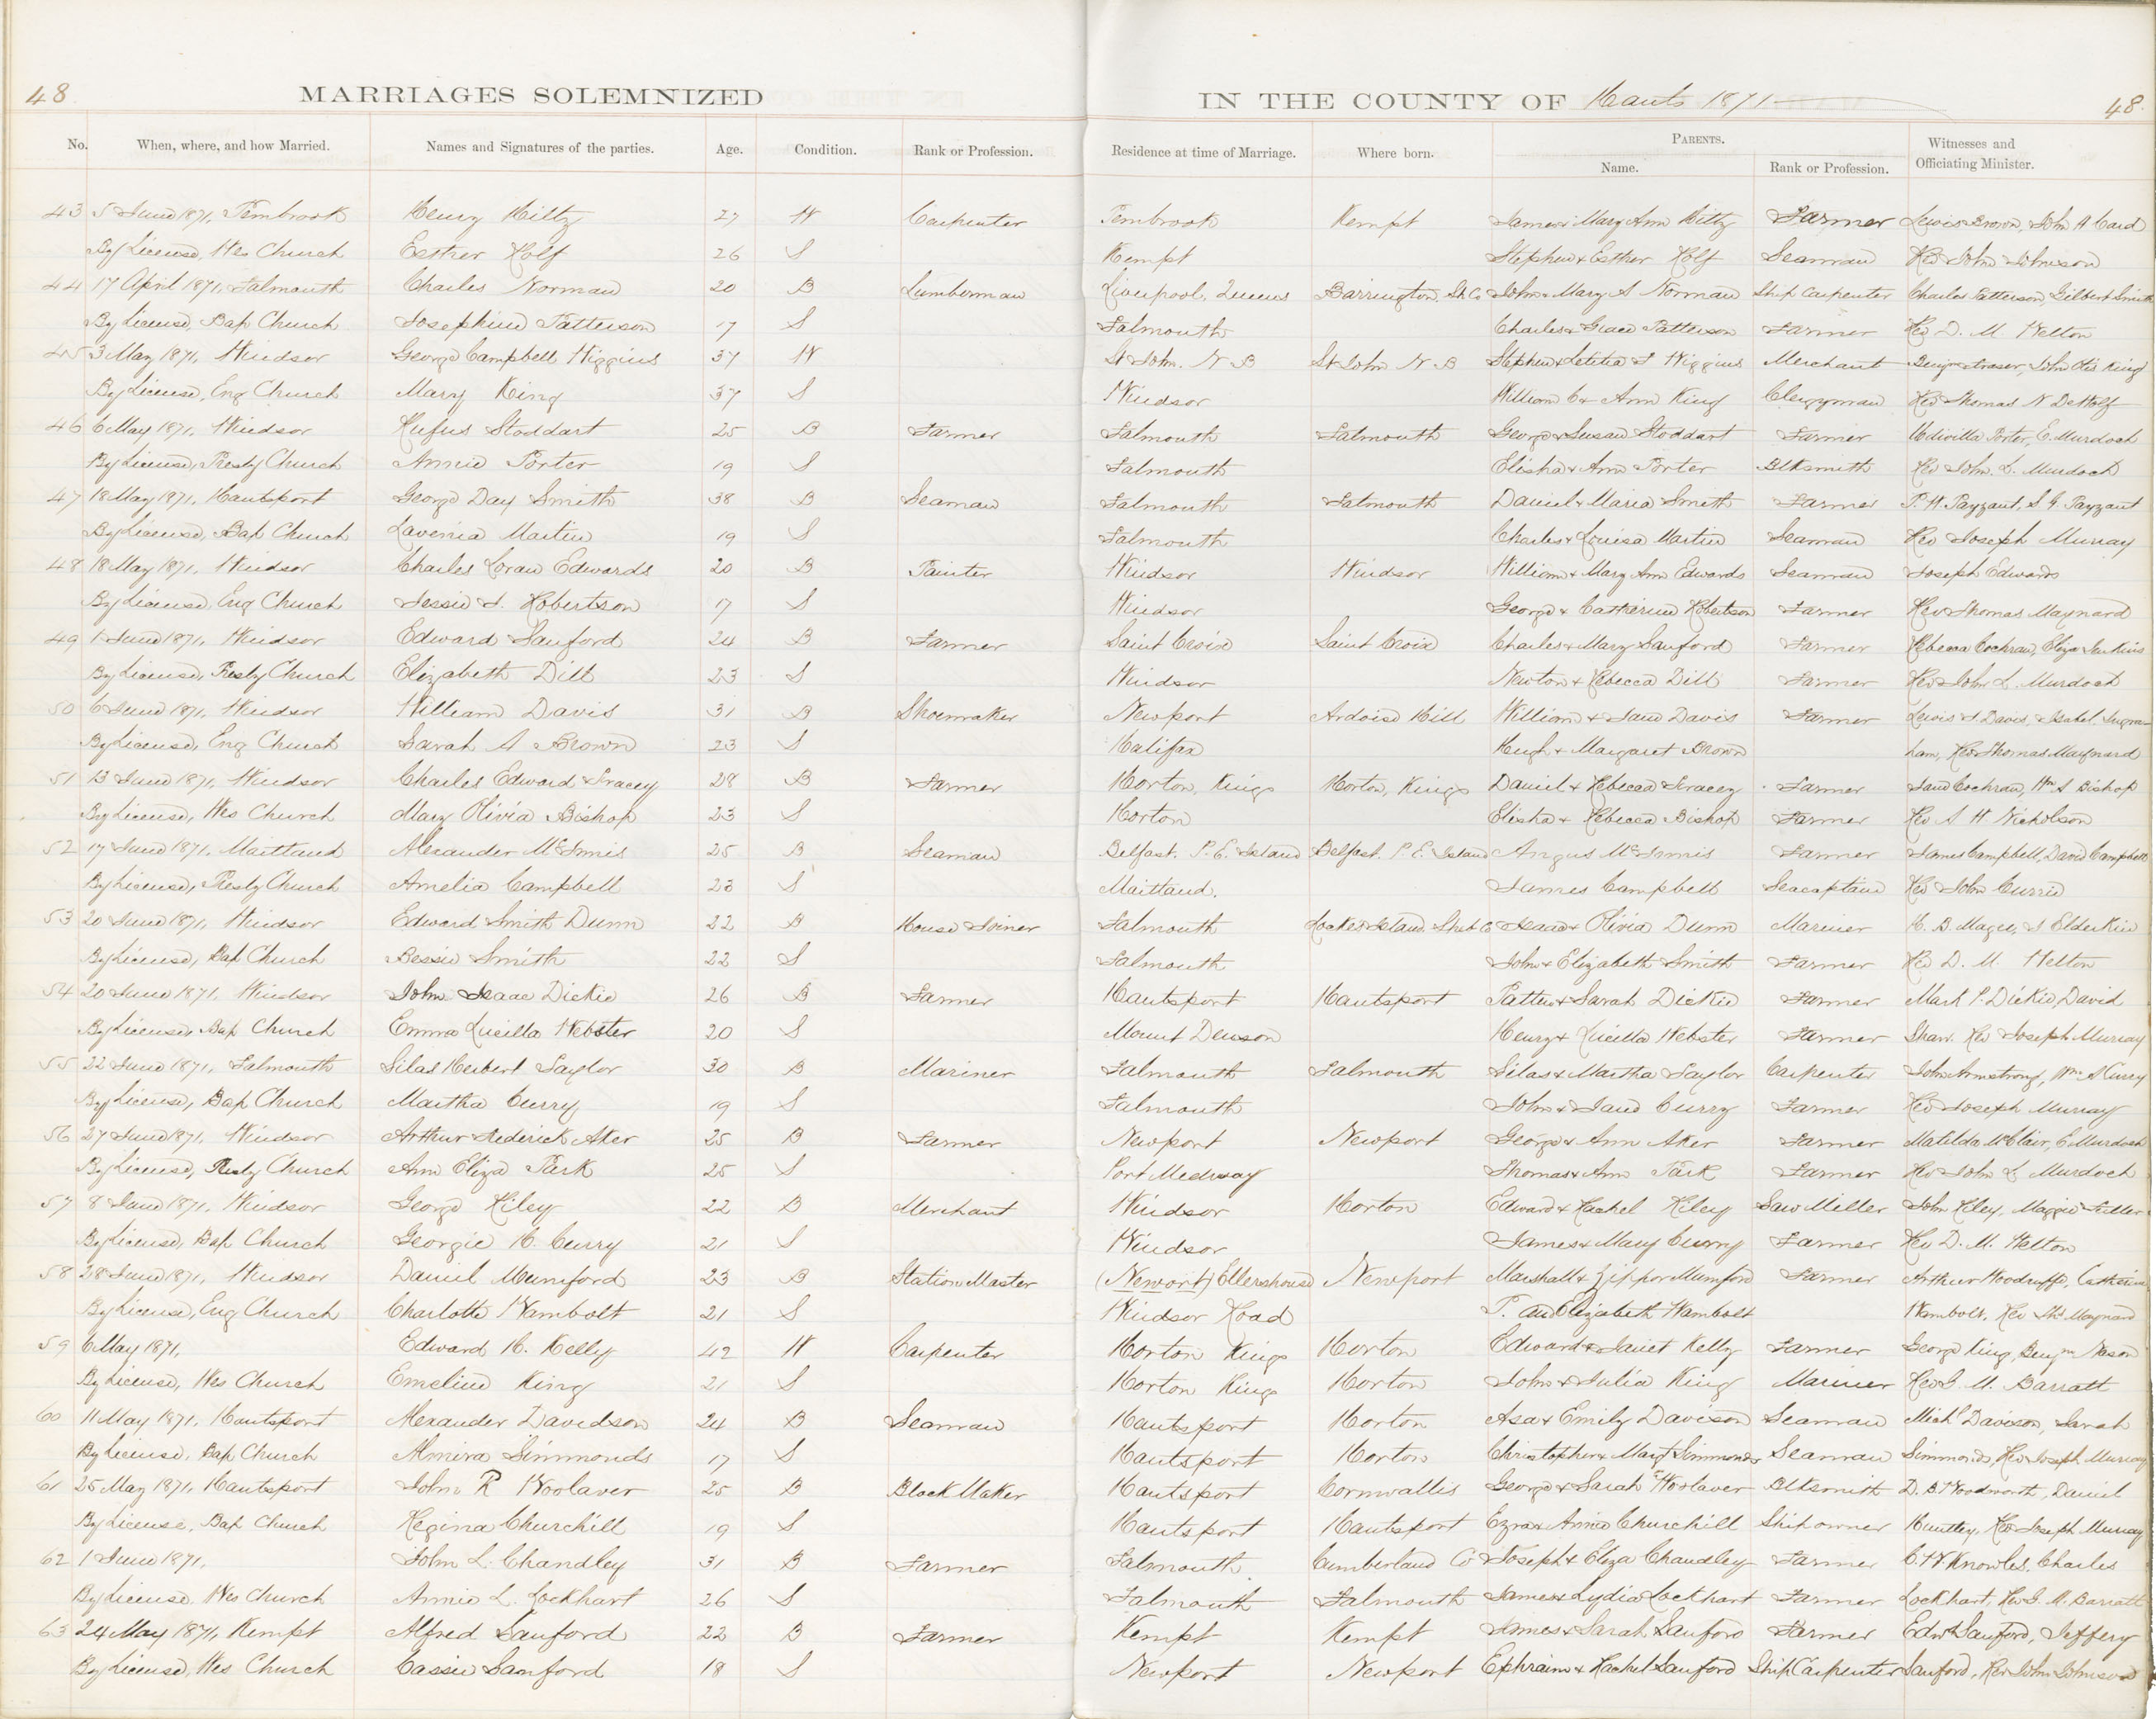 48
MARRIAGES SOLEMNIZED IN THE COUNTY OF Hants 1871
48
No. When, where, and how Married. Names and Signatures of the parties. Age. Condition. Rank or Profession. Residence at time of Marriage. Where born. PARENTS. Name. Rank or Profession. Witnesses and Officiating Minister.
43 5 June 1871, Pembrook Henry Hiltz 27 W Carpenter Pembrook Kempt James & Mary Ann Hiltz Farmer Lewis Brown, John A Card
By License, Wes Church Esther Rolf 26 S Kempt Stephen & Esther Rolf Seaman Rev John Johnson
44 17 April 1871, Falmouth Charles Norman 20 B Lumberman Liverpool, Queens Barrington, Sh Co John & Mary A Norman Ship Carpenter Charles Patterson, Gilbert Smith
By License Bap Church Josephine Patterson 17 S Falmouth Charles & Grace Patterson Farmer Rev D. M Welton
45 3 May 1871, Windsor George Campbell Wiggins 37 W St John. N B St John N B Stephen & Letitia J Wiggins Merchant Fraser, John Otis King
By License, Eng Church Mary King 37 S Windsor William C & Ann King Clergyman Rev Thomas N DeWolf
46 6 May 1871, Windsor Rufus Stoddart 25 B Farmer Falmouth Falmouth George & Susan Stoddart Farmer Porter, E. Murdoch
By License, Presby Church Annie Porter 19 S Falmouth Elisha & Ann Porter Blksmith Rev John L. Murdoch
47 18 May 1871, Hantsport George Day Smith 38 B Seaman Falmouth Falmouth Daniel & Maria Smith Farmer P. H. Payzant, S G. Payzant
By License, Bap Church Lavenia Martin 19 S Falmouth Charles & Louisa Martin Seaman Rev Joseph Murray
48 18 May 1871, Windsor Charles Loran Edwards 20 B Painter Windsor Windsor William & Mary Ann Edwards Seaman Joseph Edwards
By License, Eng Church Jessie J. Robertson 17 S Windsor George & Catherine Robertson Farmer Rev Thomas Maynard
49 1 June 1871, Windsor Edward Sanford 24 B Farmer Saint Croix Saint Croix Charles & Mary Sanford Farmer Rebecca Cochran, Eliza Jenkins
By License, Presby Church Elizabeth Dill 23 S Windsor Newton & Rebecca Dill Farmer Rev John L. Murdoch
50 6 June 1871, Windsor William Davis 31 B Shoemaker Newport Ardoise Hill William & Jane Davis Farmer Lewis J. Davis, Isabel
By License, Eng Church Sarah A Brown 23 S Halifax Hugh & Margaret Brown ham, Rev Thomas Maynard
51 13 June 1871, Windsor Charles Edward Tracey 28 B Farmer Horton, Kings Horton, Kings Daniel & Rebecca Tracey Farmer Jane Cochran, Wm A Bishop
By License, Wes Church Mary Olivia Bishop 23 S Horton Elisha & Rebecca Bishop Farmer Rev A H Nicholson
52 17 June 1871, Maitland Alexander McInnis 25 B Seaman Belfast. P. E. Island Belfast. P. E. Island Angus McInnis Farmer James Campbell, David Campbell
By License, Presby Church Amelia Campbell 23 S Maitland. James Campbell Seacaptain Rev John Currie
53 20 June 1871, Windsor Edward Smith Dunn 22 B House Joiner Falmouth Lockes Island Shel C Isaac & Olivia Dunn Mariner H. B. Magee, J Elderkin
By License, Bap Church Bessie Smith 22 S Falmouth John & Elizabeth Smith Farmer Rev D. M Welton
54 20 June 1871, Windsor John Isaac Dickie 26 B Farmer Hantsport Hantsport Patten & Sarah Dickie Farmer Mark P. Dickie, David
By License, Bap Church Emma Lucilla Webster 20 S Mount Denson Henry & Lucilla Webster Farmer Shaw. Rev Joseph Murray
55 22 June 1871, Falmouth Silas Herbert Taylor 30 B Mariner Falmouth Falmouth Silas & Martha Taylor Carpenter John Armstrong, Wm A Curry
By License, Bap Church Martha Curry 19 S Falmouth John & Jane Curry Farmer Rev Joseph Murray
56 27 June 1871, Windsor Arthur Frederick Aker 25 B Farmer Newport Newport George & Ann Aker Farmer Matilda McClair, E Murdoch
By License, Presby Church Ann Eliza Park 25 S Port Medway Thomas & Ann Park Farmer Rev John L Murdoch
57 8 June 1871, Windsor George Riley 22 B Merchant Windsor Horton Edward & Rachel Riley Saw Miller John Riley, Maggie Fuller
By License, Bap Church Georgie H. Curry 21 S Windsor James & Mary Curry Farmer Rev D. M. Welton
58 28 June 1871, Windsor Daniel Mumford 23 B Station Master (Newort) Ellershouse Newport Marshall & Zippor Mumford Farmer Arthur Woodruffe, Catherine
By License, Eng Church Charlotte Wambolt 21 S Windsor Road P. and Elizabeth Wambolt Wambolt, Rev Ths Maynard
59 6 May 1871, Edward H. Kelly 42 W Carpenter Horton Kings Horton Edward & Janet Kelly Farmer George King, Benjn Nason
By License, Wes Church Emeline King 21 S Horton Kings Horton John & Julia King Mariner Rev G. M. Barratt
60 11 May 1871, Hantsport Alexander Davidson 24 B Seaman Hantsport Horton Asa & Emily Davison Seaman Michl Davison, Sarah
By License, Bap Church Almira Simmonds 17 S Hantsport Horton Christopher & Margt Simmonds Seaman Simmonds, Rev Joseph Murray
61 25 May 1871, Hantsport John R Woolaver 25 B Block Maker Hantsport Cornwallis George & Sarah Woolaver Blksmith D. B. Woodworth, Daniel
By License, Bap Church Regina Churchill 19 S Hantsport Hantsport Ezra & Annie Churchill Shipowner Huntley, Rev Joseph Murray
62 1 June 1871, John L. Chandley 31 B Farmer Falmouth. Cumberland Co Joseph & Eliza Chandley Farmer C. W Knowles, Charles
By License, Wes Church Annie L. Lockhart 26 S Falmouth Falmouth James & Lydia Lockhart Farmer Lockhart, Rev G. M. Barratt
63 24 May 1871, Kempt Alfred Sanford 22 B Farmer Kempt Kempt James & Sarah Sanford Farmer Edwd Sanford, Jeffery
By License, Wes Church Cassie Sanford 18 S Newport Newport Ephraim & Rachel Sanford Ship Carpenter Sanford, Rev John Johnson